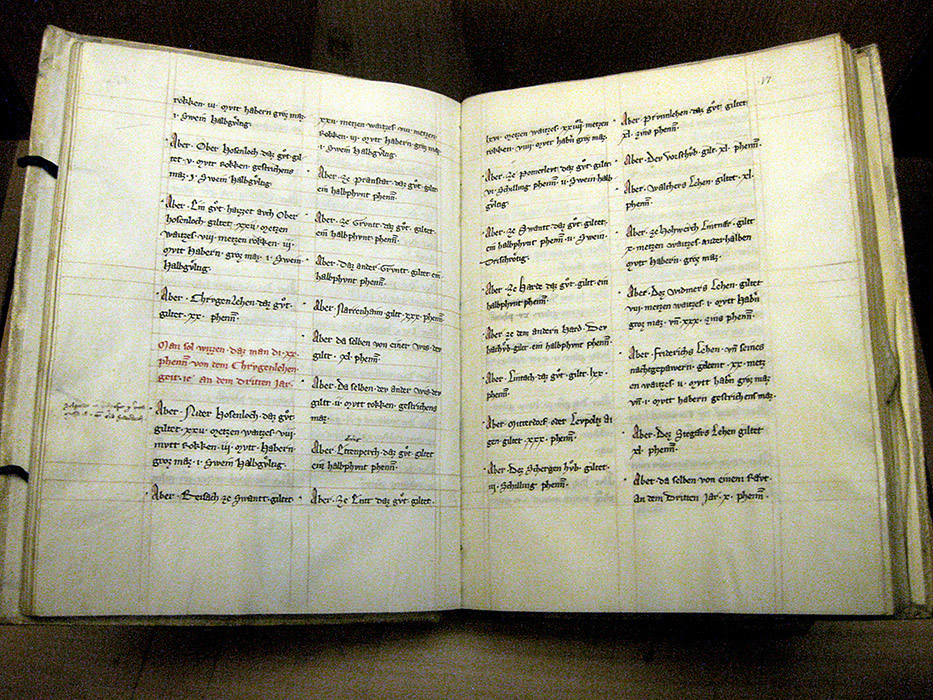 rokken · iii · mytt habern groz maz
· i · Swein halbgvltig ·
Aber · Ober Hosenloch · daz gvt · gil
tet · v · mytt rokken · gestrichens
maz · i · Swein halbgvltig ·
Aber · Ein gvt haizzet avch Ober
hosenloch · giltet · xxii · metzen
waitzes · viii · metzen rokken · iii ·
mytt habern · groz maz · i · Swein
halbgvltig ·
Aber · Chrvgenlehen · daz gvt ·
giltet · xx · phenn̄ ·
Man sol wizzen · daz man di · xx ·
phenn̄ · von dem Chrvgenlehen
geit · ie · an dem dritten Jar ·
Aber · Nider Hosenloch · daz gvt
giltet · xxii · metzen waitzes · viii
mytt rokken · iii · mytt · habern
groz maz · i · Swein halbgvltig ·
Aber · ze Swantt · giltet
xxii · metzen waitzes · viii · metzen
Rokken · iii · mytt habern groz maz
· i · Swein halbgvltig ·
Aber · ze Pranstat · daz gvt · giltet
ein halbphvnt phenn̄ ·
Aber · ze Grvntt · daz gvt · giltet ·
ein halbphvnt phenn̄ ·
Aber · Daz ander · Grvntt · gilt · ein
halbphvnt phenn̄ ·
Aber · Narrenhaim · gilt · xxx · phenn̄
Aber · da selben · von einer wis · der
gilt · xl · phenn̄ ·
Aber · Da selben · der ander wis · der
gilt · ii · mytt rokken · gestrichens
maz ·
Aber · Ettenperch · daz gvt · giltet
ein halbphvnt phenn̄ ·
Aber · ze Lint · daz gvt · giltet ·
17
lxvi · metzen waitzes · xxiiii · metzen
rokken · viii · mytt habn̄ groz maz
Aber · ze Pomerlest · daz gvt · giltet ·
vi · Schilling phenn̄ · ii · Swein halb
gvltig ·
Aber · ze Swantt · daz gvt · giltet ·
ein halbphvnt phenn̄ · ii · Swein ·
Drischvtig ·
Aber · ze Harde · daz gvt · gilt · ein
halbphvnt phenn̄ ·
Aber · ze dem andern Hard · Der
hachvb · gilt · ein halbphvnt phenn̄ ·
Aber · Lintach · daz gvt · gilt · lxx ·
phenn̄ ·
Aber · Mitterdorf · oder Levpoltz at
gen · giltet · xxx · phenn̄ ·
Aber · Dez Schergen hvb · giltet ·
iii · Schilling phenn̄ ·
Aber · Prvnnlehen · daz gvt · giltet
xl · zins phenn̄ ·
Aber · Der vorschvb · gilt · xl · phenn̄ ·
Aber · Walchers Lehen · giltet · xl ·
phenn̄ ·
Aber · ze Hohwerch Lintnar · gilt
x · metzen waitzes anderhalben
mytt habern · groz maz ·
Aber · Dez widmers Lehen · giltet
viii · metzen waitzes · i · mytt habn̄
groz maz · vn̄ · xxx · zins phenn̄ ·
Aber · Friderichs Lehen · vn̄ seines
nachgepawern · giltent · xx · metz
en waitzes · ii · mytt habn̄ groz maz
vn̄ · i · mytt habern gestrichens maz ·
Aber · Dez Steggers Lehen giltet
xl · phenn̄ ·
Aber · da selben von einem Ravt ·
an dem dritten jar · x · phenn̄ ·